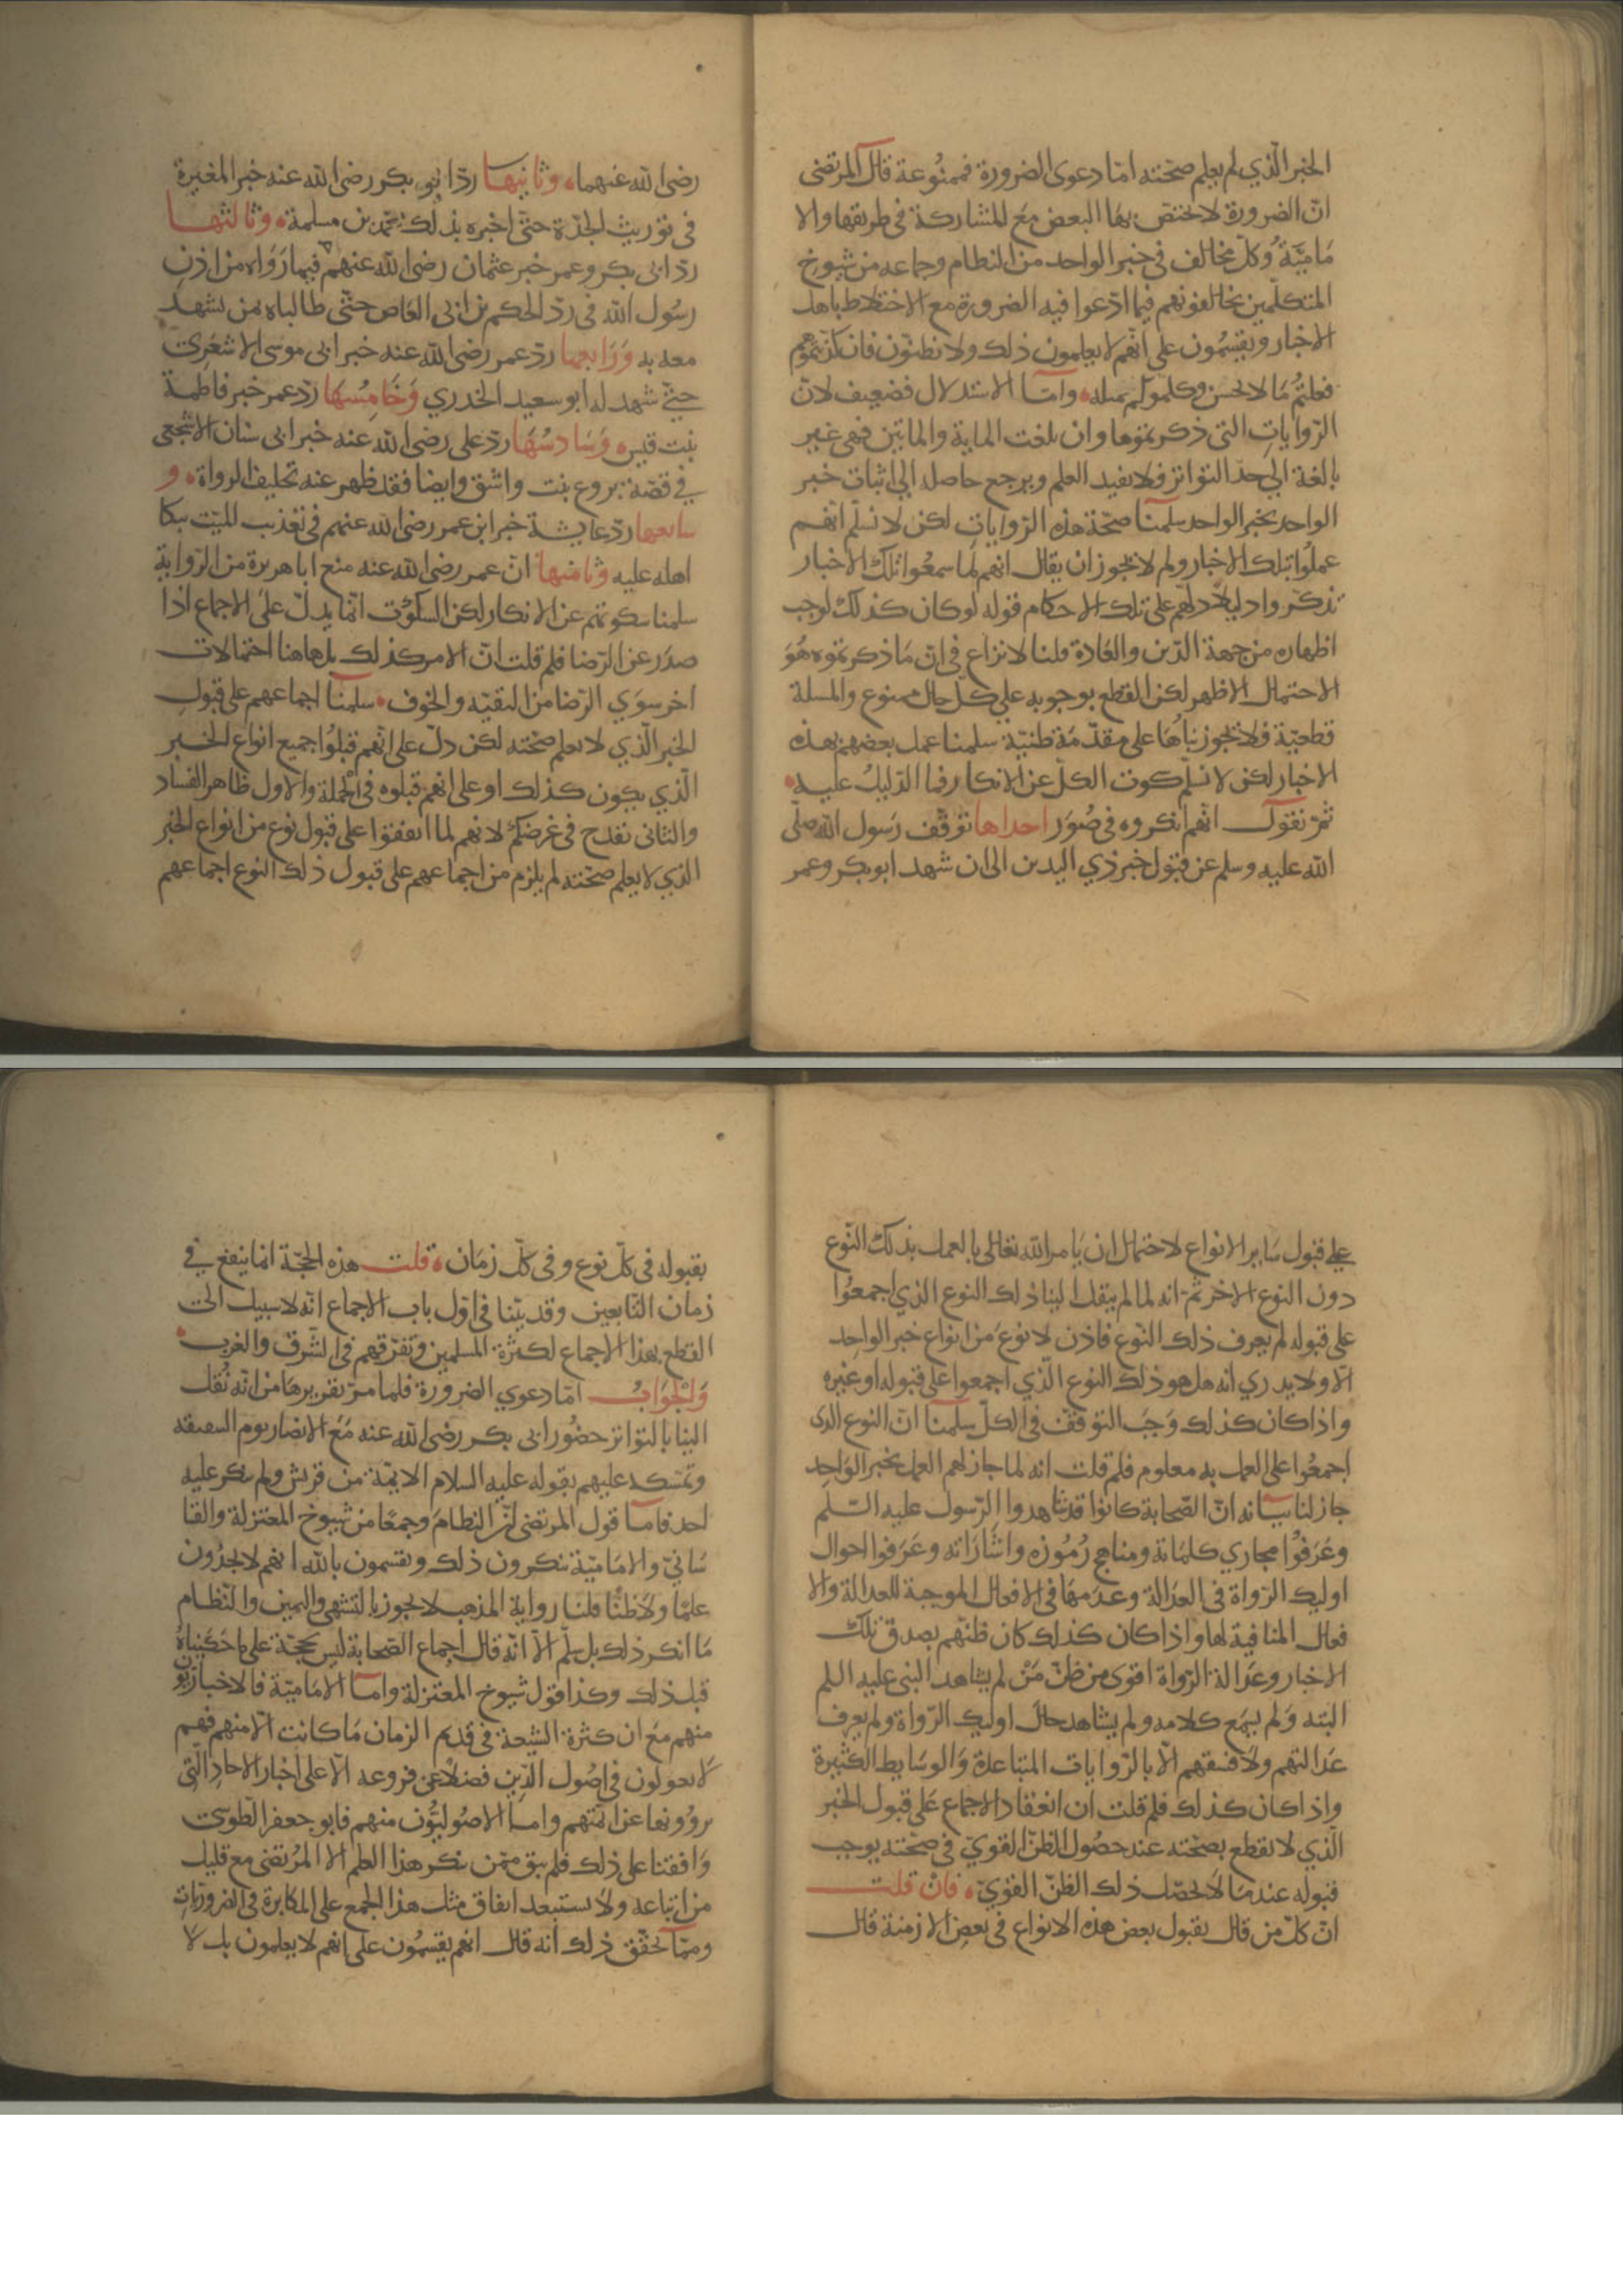 الخبر الّذي لم يعلم صحّته امّا دعوى الضرورة فممنُوعة قال المرتضى
انّ الضرورة لا تختص بها البعض مع المشاركة في طريقها والا
مَاميَّة وكلّ مخالف في خبر الواحد من النظام وجماعه من شيوخ
المتكلّمين يخالفونهم فيما ادّعوا فيه الضرورة مع الاختلاط باهل
الاخبار ويقسمُون على انّهم لا يعلمون ذلك ولا يظنّون فان كذبتموهم
فعلتمُ مَا لا يحسن وكلموكم بمثله وامّا الاستدلال فضعيف لانّ
الرّوايات التي ذكرتموها وان بلغت الماية والماتين فهى غير
بالغة الى حدّ التواتر فلا تفيد العلم ويرجع حاصله الى اثبات خبر
الواحد بخبر الواحد سلمنا صحّة هذه الرّوايات لكن لا نسلّم انهم
عملوا بتلك الاخبار ولم لا يجوز ان يقال انهم لما سمعُوا تلك الاخبار
تذكّروا دليلاً دلّهم على تلك الاحكام قوله لو كان كذلك لوجب
اظهاره من جهة الدّين والعَادة قلنا لا نزاع في انّ مَا ذكرتموه هُوَ
الاحتمال الاظهر لكن القطع بوجوبه على كلّ حال ممنوع والمسلة
قطعيّة فلا يجوز بناهَا على مقدّمَة ظنيّة سلمنا عمل بعضهم بهذه
الاخبار لكن لا نسلّم سكوت الكلّ عن الانكار فما الدّليلُ عليه
ثمّ نقول انّهم انكروه في صُوَر احداها توقّف رَسول الله صلّى
الله عليه وسلم عن قبول خبر ذي اليدين الى ان شهد ابو بكر وعمر
رضى الله عنهما وثانيها ردّ ابو بكر رضى الله عنه خبر المغيرة
في توريث الجدّة حتّى اخبره بذلك محمّد بن مسلمة وثالثها
ردّ ابى بكر وعمر خبر عثمان رضى الله عنهم فيما رَوَاه من اذن
رسُول الله في ردّ الحكم بن ابى العَاص حتّى طالباه بمن يشهد
معه به وَرَابعها ردّ عمر رضى الله عنه خبر ابى موسى الاشعَرِىّ
حتّى شهد له ابو سعيد الخدري وَخَامِسُهَا ردّ عمر خبر فاطمة
بنت قيس وَسَادسُهَا ردّ على رضى الله عنه خبر ابى سنان الاشجعى
في قصّة بروع بنت واشق وايضا فقد ظهر عنه تحليف الرواة و
سابعها ردّ عايشة خبر ابن عمر رضى الله عنهم في تعذيب الميّت ببكا
اهله عليه وثامنها انّ عمر رضى الله عنه منع ابا هريرة من الرّواية
سلمنا سكوتهم عن الانكار لكن السكُوت انما يدلّ على الاجماع اذا
صدَر عن الرّضا فلم قلت انّ الامر كذلك بل هاهنا احتمالات
اخر سوَي الرّضا من التقيّه والخوف سلمنا اجماعهم على قبول
الخبر الّذي لا يعلم صحّته لكن دلّ على انّهم قبلُوا جميع انواع الخبر
الّذي يكون كذلك او على انهم قبلوه في الجملة والاول ظاهر الفساد
والثانى نقدح في غرضكم لانهم لما اتفقوا على قبول نوع من انواع الخبر
الذي لا يعلم صحّته لم يلزم من اجماعهم على قبول ذلك النوع اجماعهم
على قبول سَاير الانواع لاحتمال ان يَامر الله تعالى بالعمل بذلك النّوع
دون النوع الاخر ثمّ انه لما لم ينقل الينا ذلك النوع الذي اجمعُوا
على قبوله لم يعرف ذلك النّوع فاذن لا نوعَ من انواع خبر الواحد
الّا ولا يدري انه هل هو ذلك النوع الّذي اجمعوا على قبوله او غيره
واذا كان كذلك وَجَب التوقّف في الكلّ سلمنا انّ النوع الذى
اجمعُوا على العمل به معلوم فلم قلت انه لما جاز لهم العمل بخبر الوَاحد
جاز لنا بيانه انّ الصّحابة كانُوا قد شاهدوا الرّسول عليه السّلم
وعَرَفُوا مجاري كلمَاته ومناهج رُمُوزه واشَارَاته وعَرَفوا احوال
اوليك الرّواة في العدَالة وعدَمهَا في الافعال الموجبة للعدالة والا
فعال المنافية لها واذا كان كذلك كان ظنّهم بصدق تلك
الاخبار وعَدالة الرّواة اقوى من ظنّ مَنْ لم يشاهد النبى عليه السلم
البته وَلم يسمَع كلامه ولم يشاهد حالَ اوليك الرّواة ولم يعرف
عَدالتهم ولا فسقهم الّا بالرّوايات المتباعدة وَالوسَايط الكثيرة
واذا كان كذلك فلم قلت ان انعقاد الاجماع عَلى قبول الخبر
الّذي لا نقطع بصحّته عند حصُول الظنّ القويّ في صحّته يوجب
قبوله عندمَا لا يحصّل ذلك الظنّ القويّ فان قلت
انّ كلّ من قال بقبول بعض هذه الانواع في بعض الازمنة قال
بقبوله في كلّ نوع وفي كلّ زمَان قلت هذه الحجّة انما ينفع في
زمان التّابعين وقد بيّنا في اوّل باب الاجماع انّه لا سبيل الى
القطع بهذا الاجماع لكثرة المسلمين وتفرّقهم في الشّرق والغرب
وَالجَوابُ امّا دعوي الضرورة فلما مرّ تقريرهَا من انّه نُقل
الينا بالتواتر حضُور ابى بكر رضى الله عنه مَعَ الانصار يوم السقيفه
وتمسّكه عليهم بقوله عليه السلام الايمّة من قريش ولم ينكر عليه
احد فامّا قول المرتضى انّ النظامَ وجمعًا من شيوخ المعتزلة والقا
سَانيّ والامَاميّة ينكرون ذلك ويقسمون بالله انهم لا يجدُون
علمًا ولا ظنًّا قلنا رواية المذهب لا يجوز بالتشهي واليمين والنّظام
مَا انكر ذلك بل سلّم الّا انّه قال اجماع الصّحابة ليس بحجّة على ما حَكَيناهُ
قبل ذلك وكذا قول شيوخ المعتزلة وامّا الامَاميّة فالاخباريّون
منهم مَعَ ان كثرة الشيعة في قديم الزمان مَا كانت الّا منهم فهم
لا يعولون في اصُول الدّين فضلاً عن فروعه الّا على اخبار الاحاد الّتي
يروُونها عن ائمّتهم وامّا الاصُوليّون منهم فابو جعفر الطّوسيّ
وَافقنا على ذلك فلم يبق ممّن ينكر هذا العلم الا المرُتضى مع قليل
من اتباعه ولا يستبعد اتفاق مثل هذا الجمع على المكابرة في الضروريّات
وممّا يحقّق ذلك انه قال انهم يقسمُون على انهم لا يعلمون بل لا